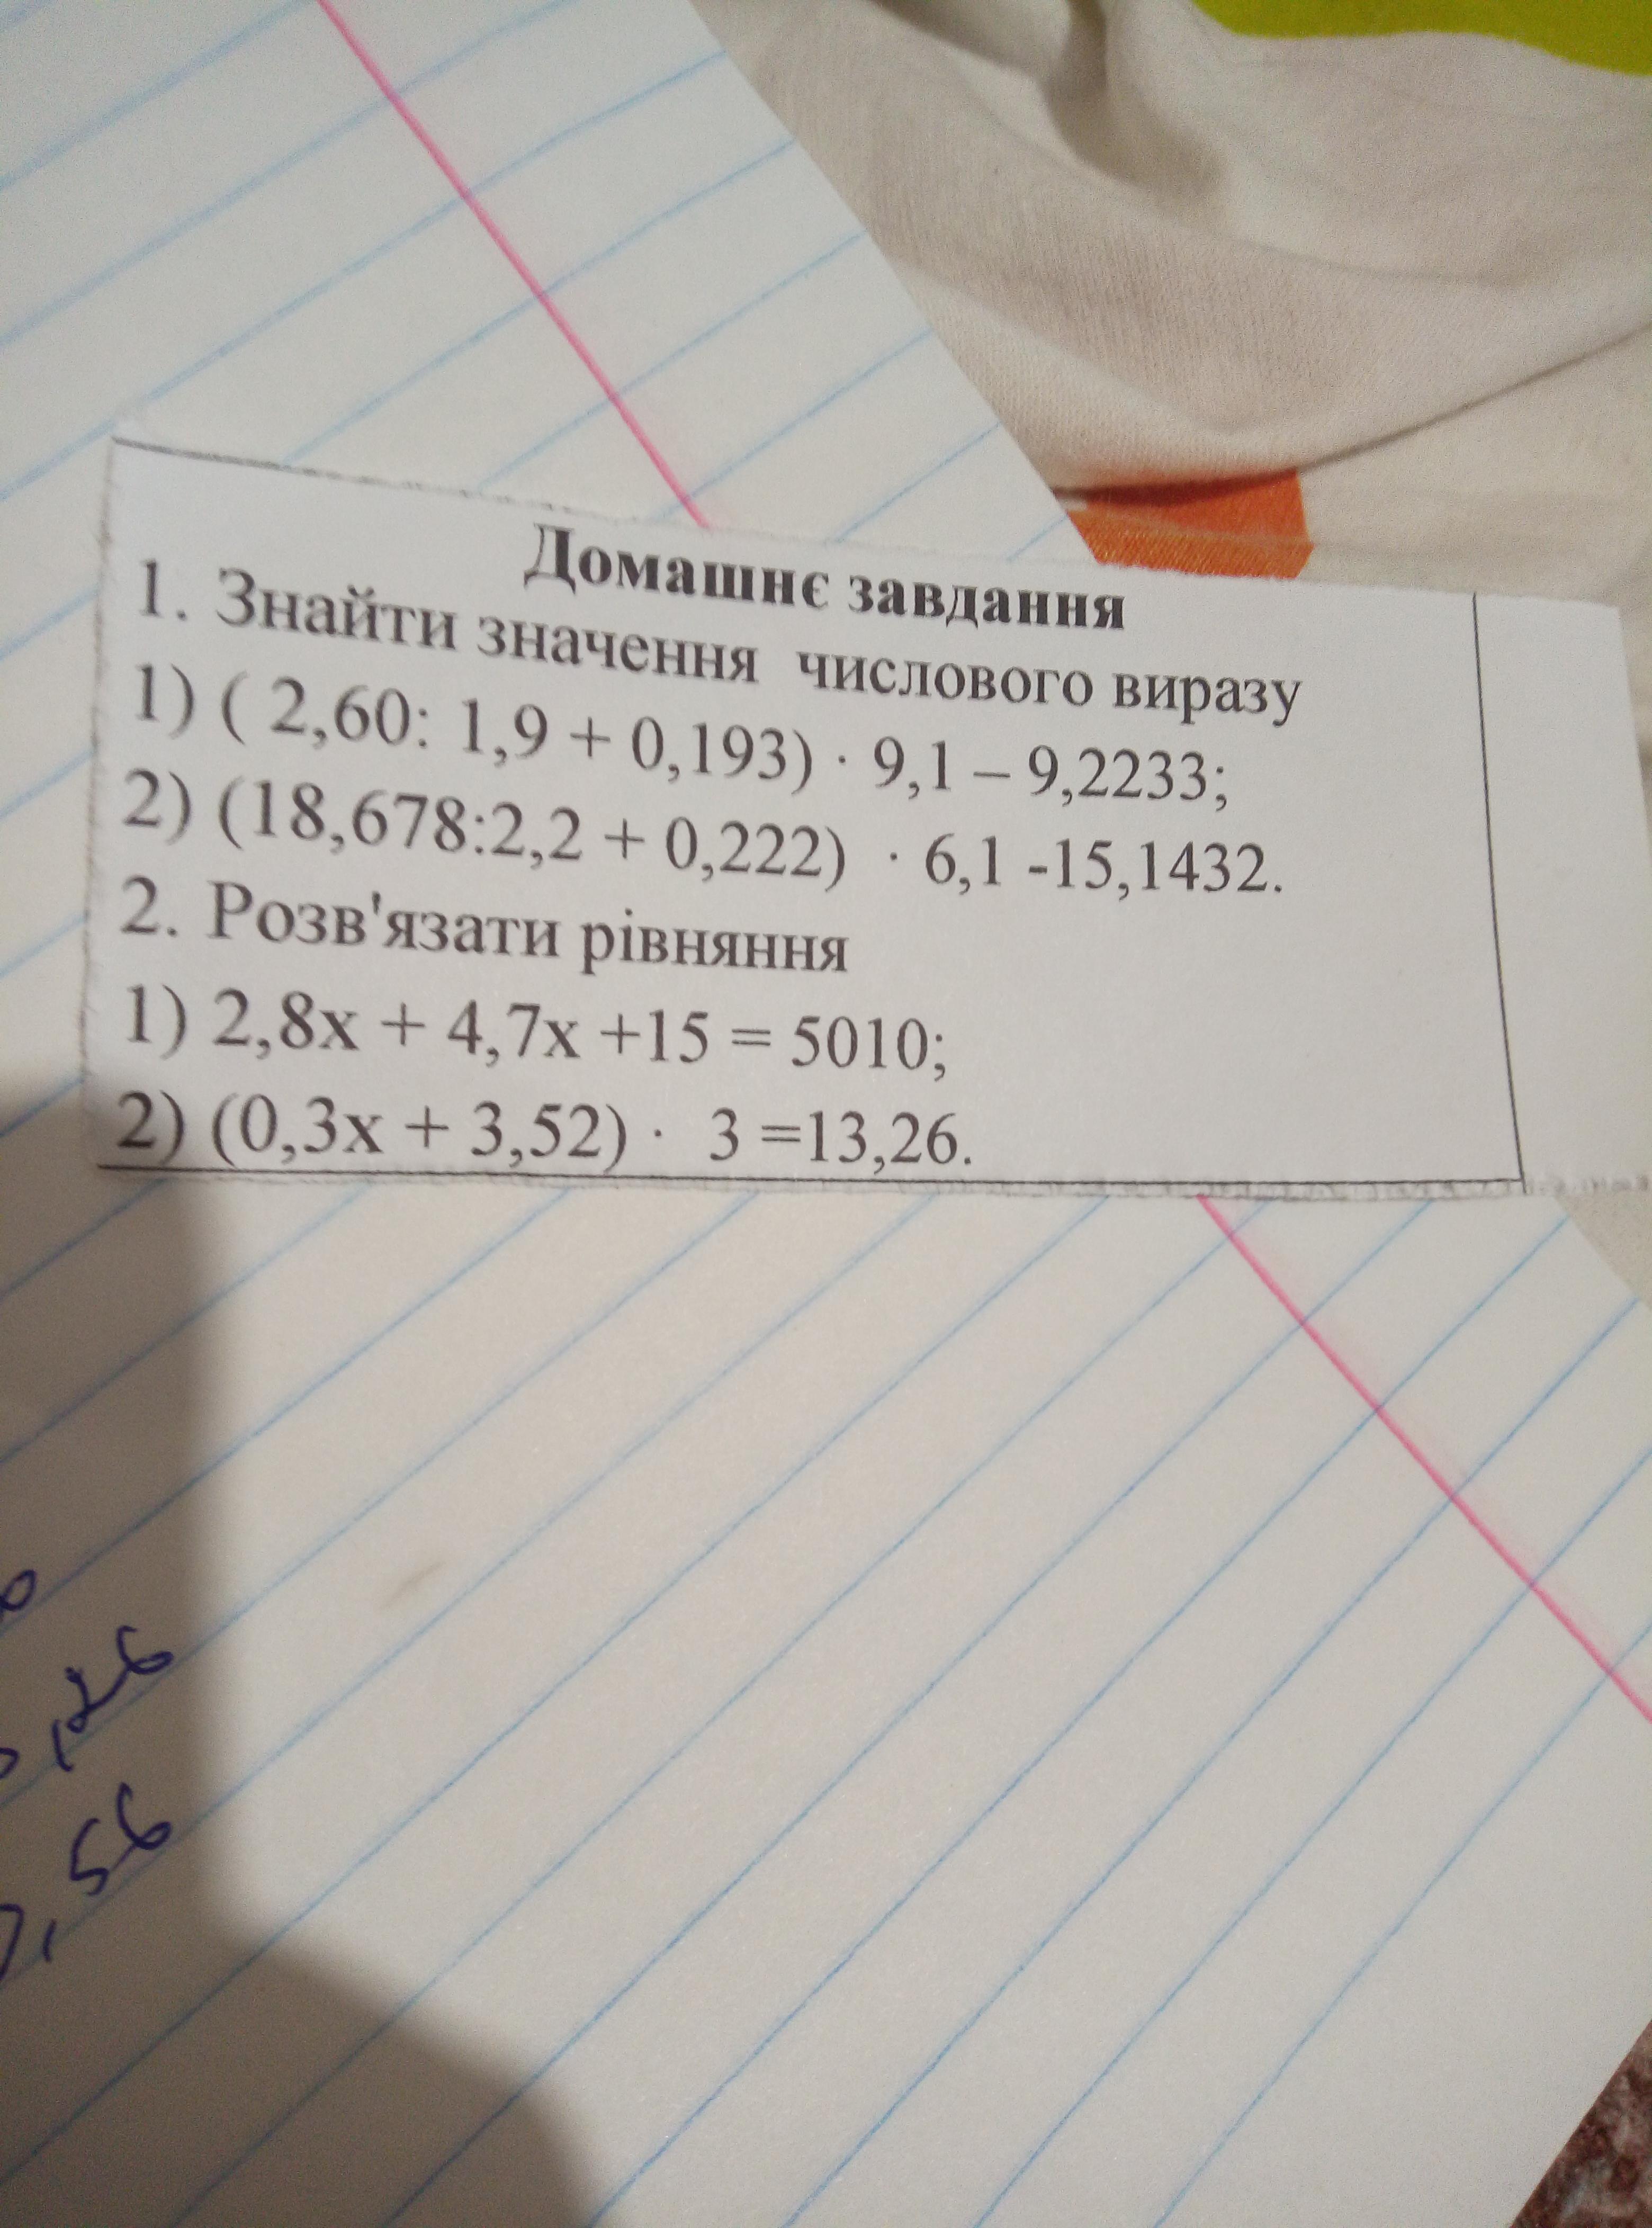 Домашнє завдання
1. Знайти значення числового виразу
1) ( 2,60: 1,9 + 0,193) · 9,1 – 9,2233;
2) (18,678:2,2 + 0,222) · 6,1 -15,1432.
2. Розв'язати рівняння
1) 2,8х + 4,7х +15 = 5010;
2) (0,3х + 3,52) · 3 =13,26.
,26
,56